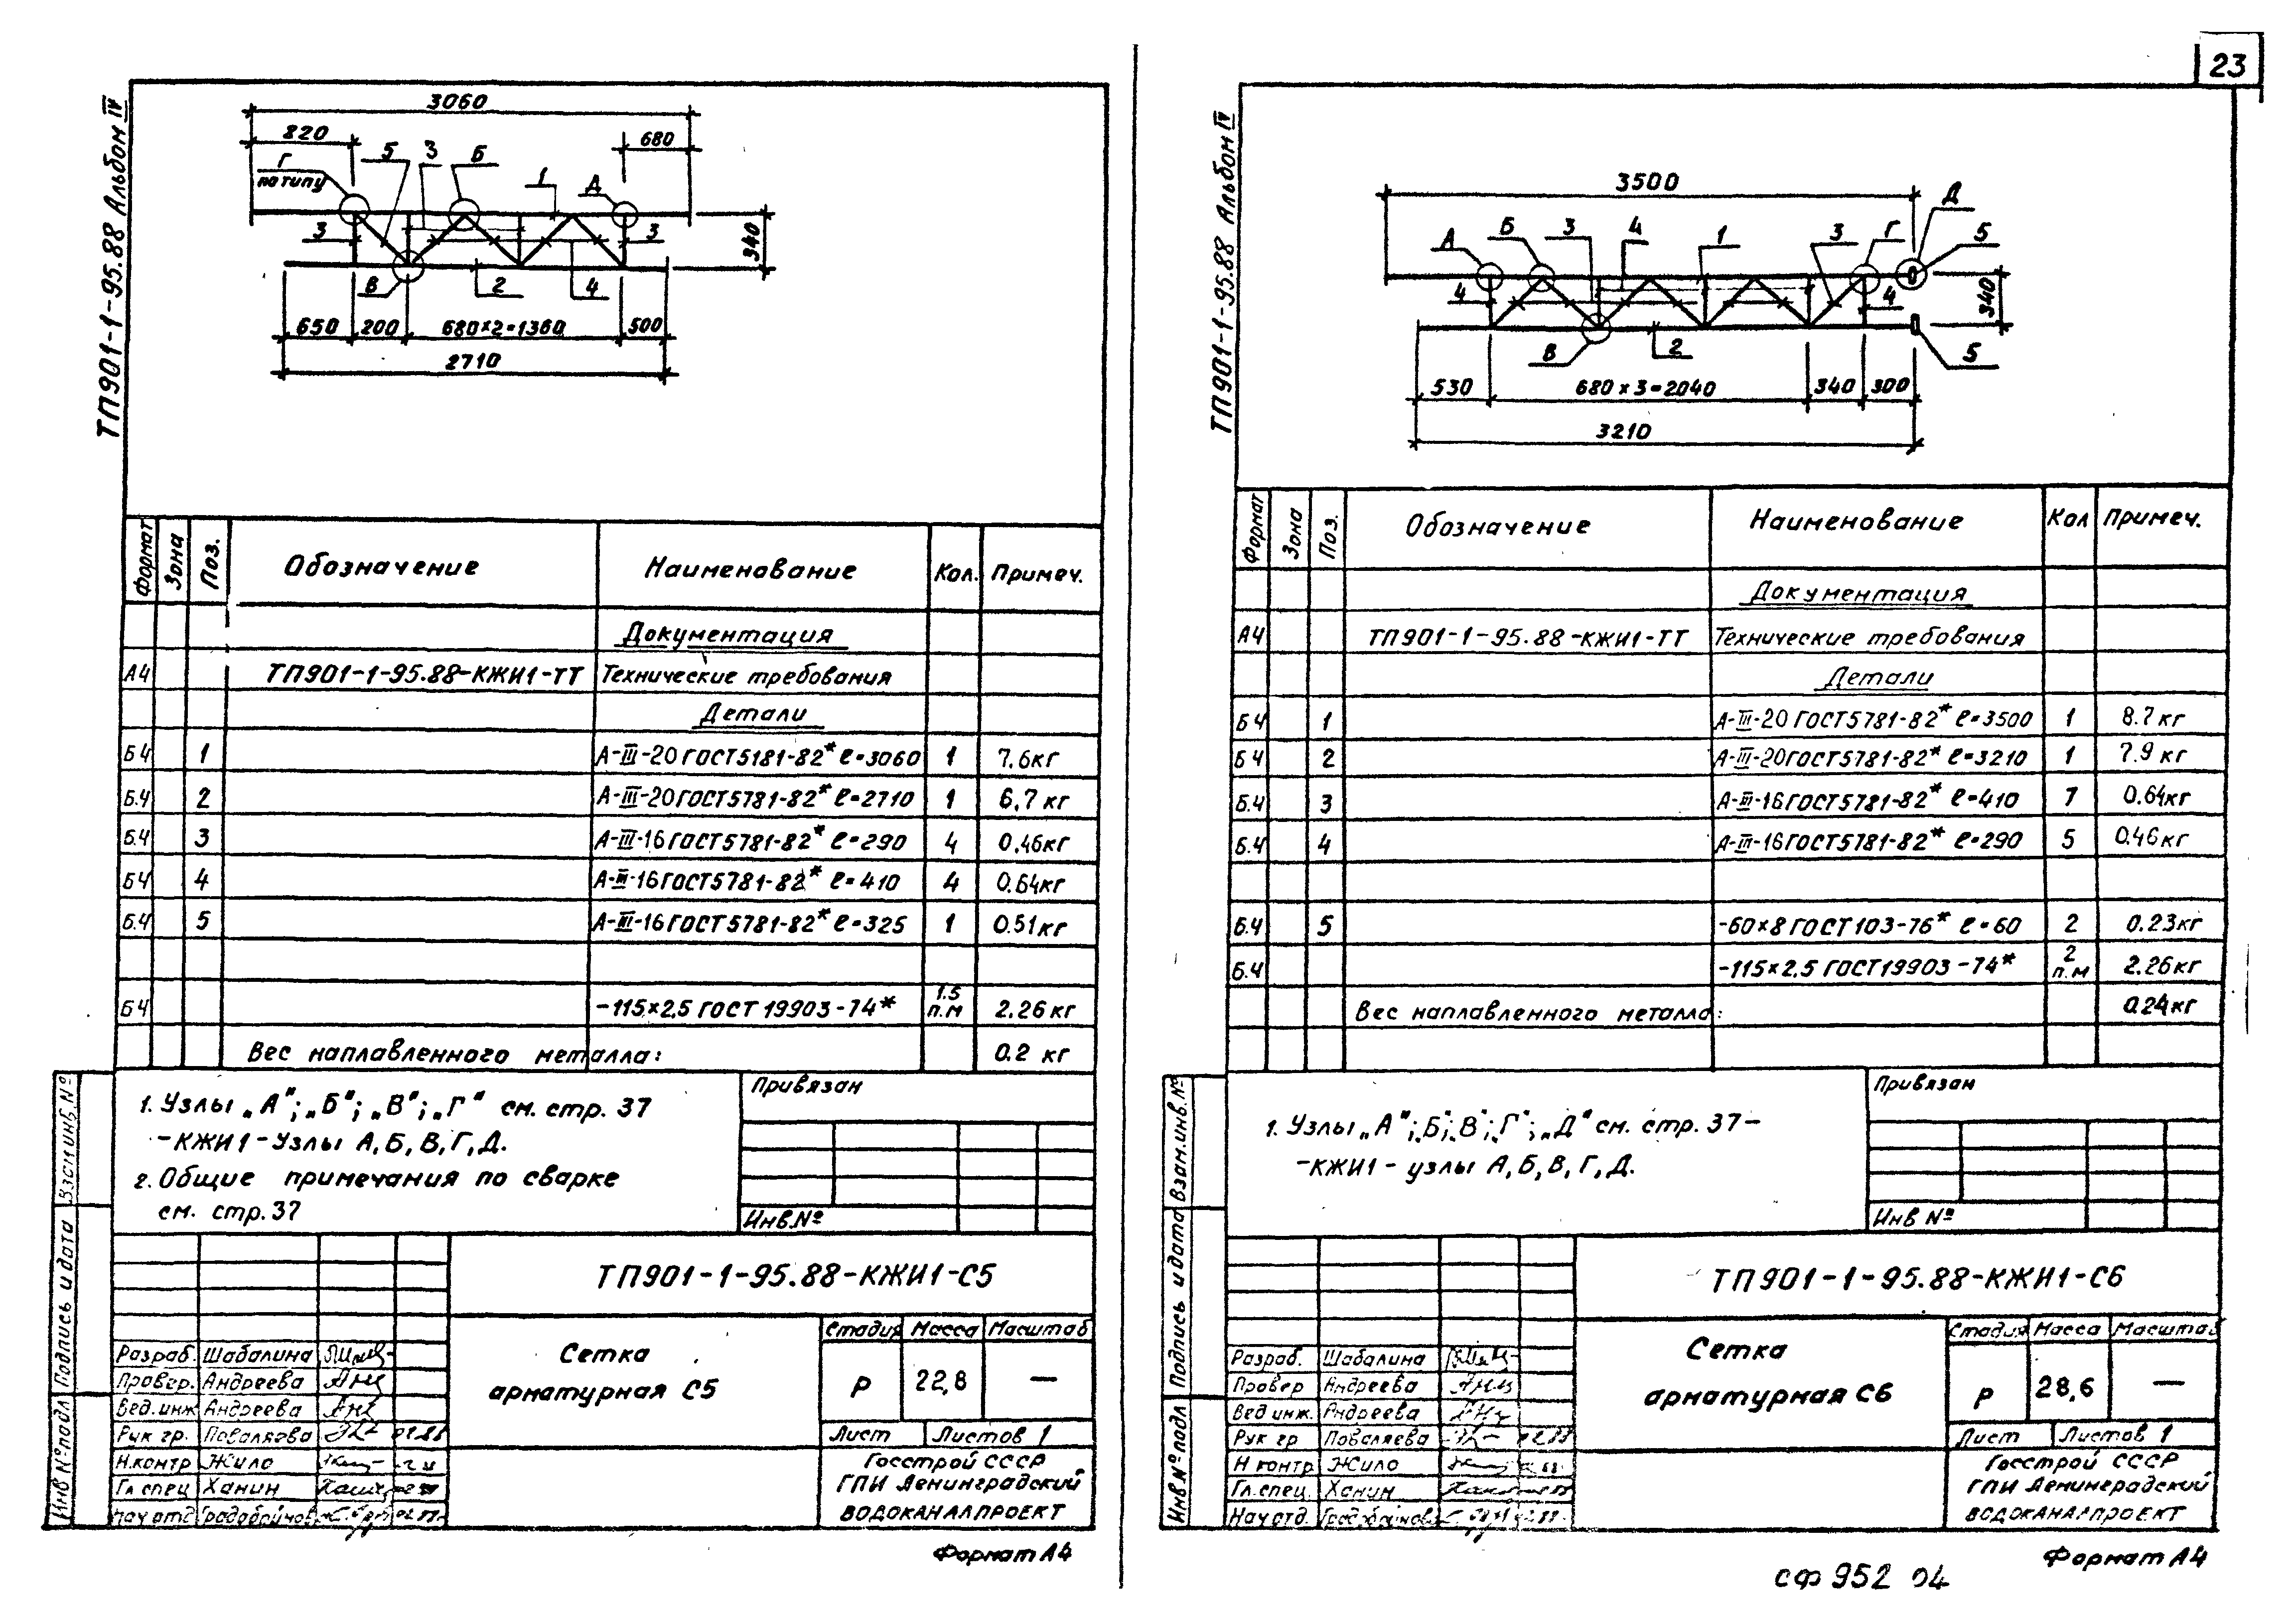 23
ТП901-1-95.88 Альбом IV
3060
820
680
Г
по типу
5
3
Б
1
Д
3
3
340
В
2
4
650
200
680×2=1360
500
2710
Формат
Зона
Поз.
Обозначение
Наименование
Кол.
Примеч.
Документация
А4 ТП901-1-95.88-КЖИ1-ТТ Технические требования
Детали
Б4 1 А-III-20 ГОСТ5181-82* ℓ=3060 1 7.6кг
Б.4 2 А-III-20 ГОСТ5781-82* ℓ=2710 1 6,7 кг
Б.4 3 А-III-16 ГОСТ5781-82* ℓ=290 4 0,46кг
Б4 4 А-III-16 ГОСТ5781-82* ℓ=410 4 0.64кг
Б.4 5 А-III-16 ГОСТ5781-82* ℓ=325 1 0.51кг
Б4 -115×2,5 ГОСТ 19903-74* 1.5 п.м 2.26 кг
Вес наплавленного металла: 0.2 кг
1. Узлы „А"; „Б"; „В"; „Г" см. стр. 37
-КЖИ1-Узлы А,Б,В,Г,Д.
2. Общие примечания по сварке
см. стр.37
Привязан
Инв.№
Инв №подл
Подпись и дата
Взам инв.№
ТП901-1-95.88-КЖИ1-С5
Сетка
арматурная С5
Стадия Масса Масштаб
Р 22,8 —
Лист Листов 1
Госстрой СССР
ГПИ Ленинградский
ВОДОКАНАЛПРОЕКТ
Разраб. Шабалина
Провер. Андреева
Вед.инж Андреева
Рук гр. Поваляева
Н.контр Жило
Гл.спец Ханин
Нач отд
Формат А4
ТП901-1-95.88 Альбом IV
3500
А
Б
3
4
1
3
Г
Д
5
4
4
340
В
2
5
530
680×3=2040
340
300
3210
Формат
Зона
Поз.
Обозначение
Наименование
Кол
Примеч.
Документация
А4 ТП901-1-95.88-КЖИ1-ТТ Технические требования
Детали
Б4 1 А-III-20 ГОСТ5781-82* ℓ=3500 1 8.7 кг
Б4 2 А-III-20ГОСТ5781-82* ℓ=3210 1 7.9 кг
Б.4 3 А-III-16 ГОСТ5781-82* ℓ=410 7 0.64кг
Б.4 4 А-III-16ГОСТ5781-82* ℓ=290 5 0.46кг
Б.4 5 -60×8 ГОСТ 103-76* ℓ=60 2 0.23кг
Б.4 -115×2,5 ГОСТ19903-74* 2 п.м 2.26кг
Вес наплавленного металла: 0.24кг
1. Узлы „А"; „Б"; „В"; „Г"; „Д" см. стр. 37-
-КЖИ1- узлы А,Б,В,Г,Д.
Привязан
Инв №
Инв.№ подл
Подпись и дата
Взам.инв.№
ТП901-1-95.88-КЖИ1-С6
Сетка
арматурная С6
Стадия Масса Масштаб
Р 28,6 —
Лист Листов 1
Госстрой СССР
ГПИ Ленинградский
ВОДОКАНАЛПРОЕКТ
Разраб. Шабалина
Провер Андреева
Вед инж. Андреева
Рук гр Поваляева
Н контр Жило
Гл.спец. Ханин
Нач отд.
Формат А4
СФ 952 04